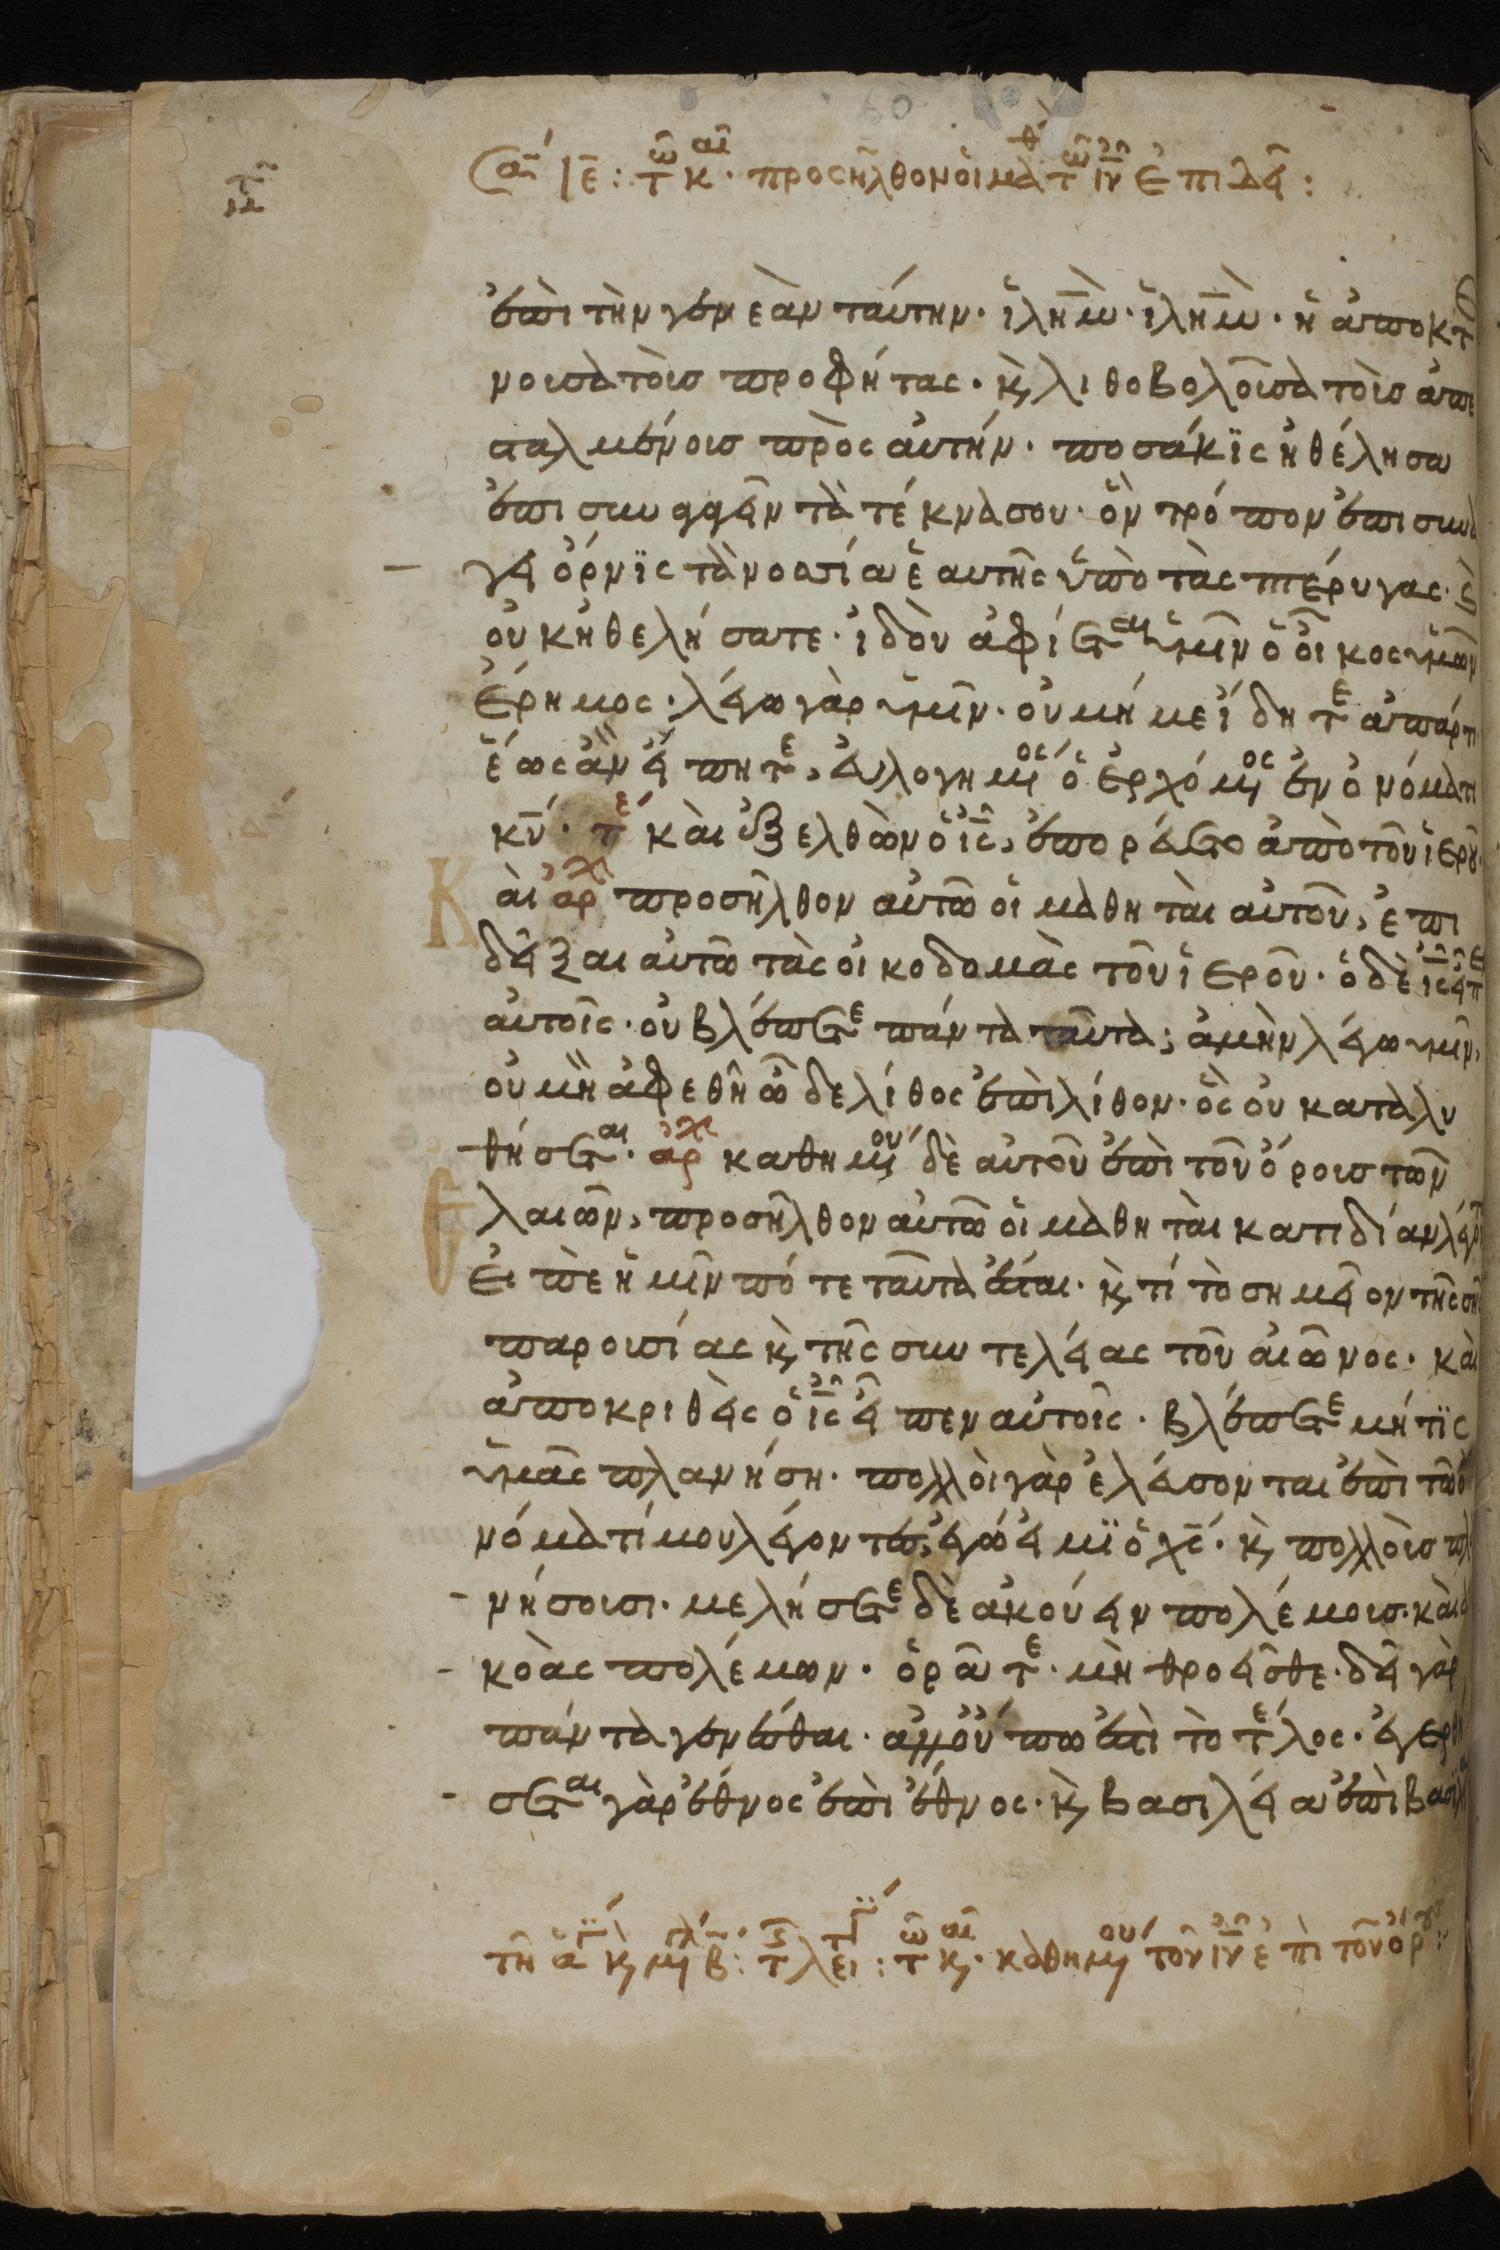 Σα ιε: τω και προσηλθον οι μαθ τω ιυ επιδει:
ἐπὶ τὴν γενεὰν ταύτην· ἱλημ· ἱλημ· ἡ ἀποκτ
νουσα τοὺσ προφήτας· κ λιθοβολοῦσα τοὺσ ἀπε
σταλμένουσ πρὸς αὐτήν· ποσάκϊς ἠθέλησα
ἐπισυναγαγεῖν τὰ τέκνα σου· ὃν τρόπον ἐπισυνά
γει ὄρνϊς τὰ νοσσία ἑαυτῆς ὑπὸ τὰς πτέρυγας· κ
οὐκ ἠθελήσατε· ἰδοὺ ἀφίεται ὑμῖν ὁ οἶκος ὑμῶν
ἔρημος· λέγω γὰρ ὑμῖν· οὐ μή με ἴδητε ἀπάρτι
ἕως ἂν εἴπητε, εὐλογημένος ὁ ἐρχόμενος ἐν ὀνόματι
κυ· τε καὶ ἐξελθὼν ὁ ις, ἐπορεύετο ἀπὸ τοῦ ἱεροῦ·
Καὶ αρχ προσῆλθον αὐτῶ οἱ μαθηταὶ αὐτοῦ, ἐπι
δεῖξαι αὐτῶ τὰς οἰκοδομὰς τοῦ ἱεροῦ· ὁ δὲ ις εἶπε
αὐτοῖς· οὐ βλέπετε πάντα ταῦτα; ἀμὴν λέγω ὑμῖν,
οὐ μὴ ἀφεθῆ ὧδε λίθος ἐπὶ λίθον· ὃς οὐ καταλυ
θήσεται· αρχ καθημένου δὲ αὐτοῦ ἐπὶ τοῦ ὄρουσ τῶν
Ελαιῶν, προσῆλθον αὐτῶ οἱ μαθηταὶ κατιδίαν λέγοντ
Εἰπὲ ἡμῖν πότε ταῦτα ἔσται· κ τί τὸ σημεῖον τῆς σῆς
παρουσίας κ τῆς συντελείας τοῦ αἰῶνος· καὶ
ἀποκριθεὶς ὁ ις εἶπεν αὐτοῖς· βλέπετε μή τϊς
ὑμᾶς πλανήση· πολλοὶ γὰρ ἐλεύσονται ἐπὶ τῶ ὀ
νόματί μου λέγοντες, ἐγώ εἰμϊ ὁ χς· κ πολλοὺσ πλα
νήσουσι· μελήσετε δὲ ἀκούειν πολέμουσ· καὶ ἀ
κοὰς πολέμων· ὁρᾶτε· μὴ θροεῖσθε· δεῖ γὰρ
πάντα γενέσθαι· ἀλλ' οὔπω ἐστὶ τὸ τέλος· ἐγερθή
σεται γὰρ ἔθνος ἐπὶ ἔθνος· κ βασιλεία ἐπὶ βασιλεί